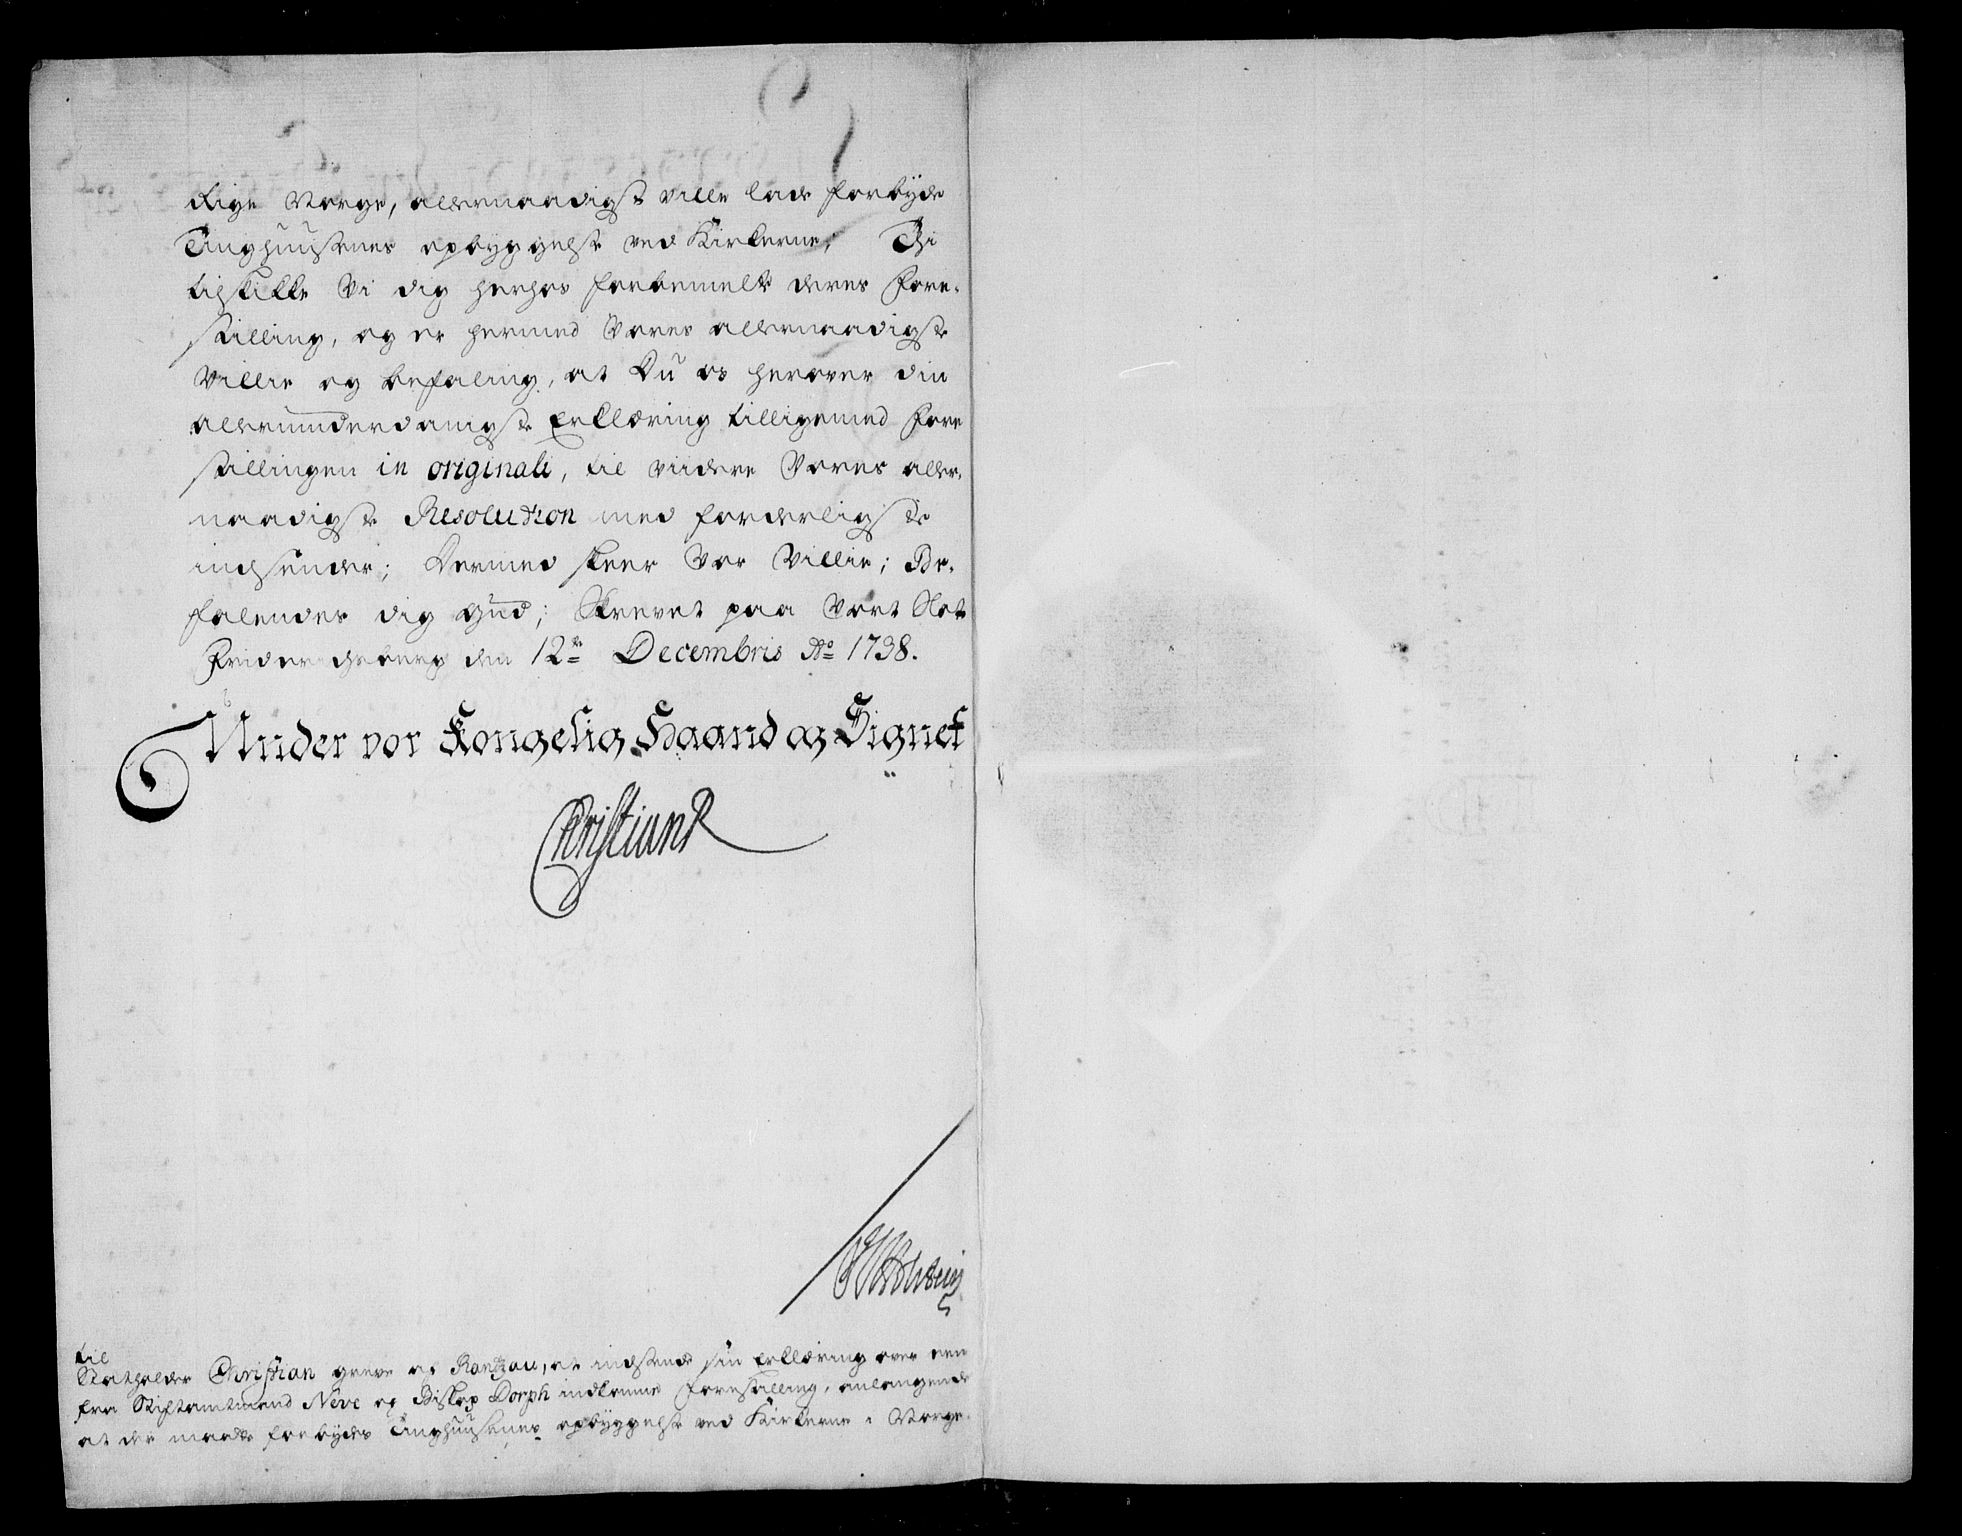 Rige Norge, allernaadigst ville lade forbyde
Tinghuusenes opbyggelse ved Kirkerne; Thi
tilskikke Vi dig herhos forbemelte deres Fore-
stilling, og er hermed Vores allernaadigste
Villie og befaling, at Du os herover din
allerunderdanigste Erklæring tilligemed Fore
stillingen in originali, til viidere Vores aller-
naadigste Resolution med forderligste
indsender; Dermed skeer Vor Villie; Be-
falendes dig Gud; Skrevet paa Vort Slot
Friderichsberg den 12te Decembris Ao 1738.
Under vor Kongelig Haand og Signet
Christian R
JLHolstein
til
Statholder Christian greve af Rantzau, at indsende sin Erklæring over een
fra Stiftamtmand Neve og Biskop Dorph indkomne Forestilling, anlangende
at der maatte forbydes Tinghuusenes opbyggelse ved Kirkerne i Norge.